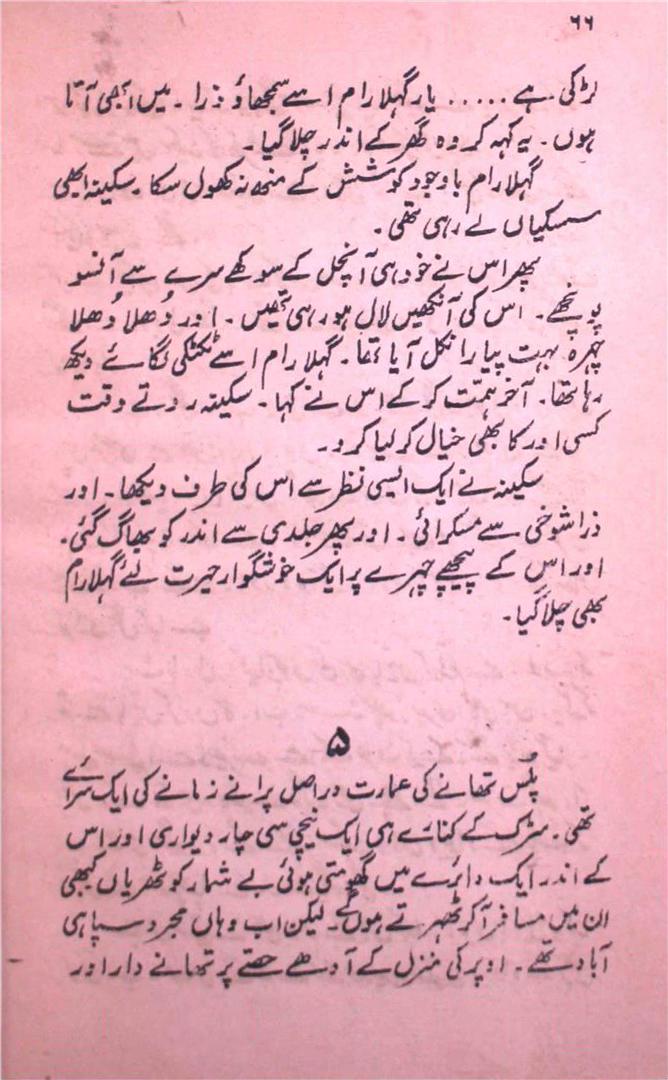 ۶۶
لڑکی ہے ..... یار گہلا رام اسے سمجھاؤ ذرا ۔ میں ابھی آتا
ہوں ۔ یہ کہہ کر وہ گھر کے اندر چلا گیا ۔
گہلا رام باوجود کوشش کے منھ نہ کھول سکا ۔ سکینہ ابھی
سسکیاں لے رہی تھی ۔
پھر اس نے خود ہی آنچل کے سوکھے سرے سے آنسو
پونچھے ۔ اس کی آنکھیں لال ہو رہی تھیں ۔ اور دُھلا دُھلا
چہرہ بہت پیارا نکل آیا تھا ۔ گہلا رام اسے ٹکٹکی لگائے دیکھ
رہا تھا ۔ آخر ہمّت کر کے اس نے کہا ۔ سکینہ روتے وقت
کسی اور کا بھی خیال کر لیا کرو ۔
سکینہ نے ایک ایسی نظر سے اس کی طرف دیکھا ۔ اور
ذرا شوخی سے مسکرائی ۔ اور پھر جلدی سے اندر کو بھاگ گئی ۔
اور اس کے پیچھے چہرے پر ایک خوشگوار حیرت لئے گہلا رام
بھی چلا گیا ۔
۵
پلُس تھانے کی عمارت دراصل پرانے زمانے کی ایک سرائے
تھی ۔ سڑک کے کنارے ہی ایک نیچی سی چار دیواری اور اس
کے اندر ایک دائرے میں گھومتی ہوئی بے شمار کوٹھریاں کبھی
ان میں مسافر آکر ٹھہرتے ہوں گے ۔ لیکن اب وہاں مجرد سپاہی
آباد تھے ۔ اوپر کی منزل کے آدھے حصّے پر تھانے دار اور